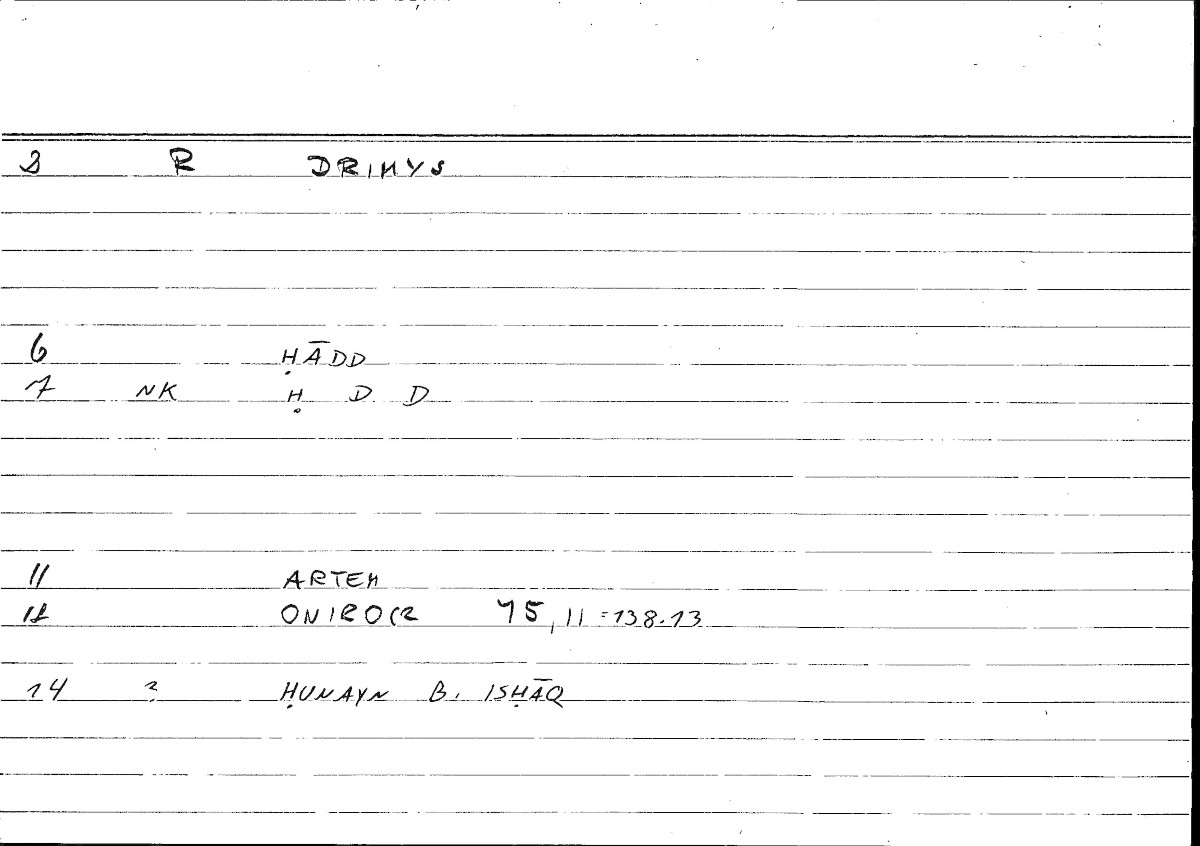 3 R DRIMYS
6 ḤĀDD
7 NK Ḥ D D
11 ARTEM
12 ONIROCR 75,11=138.13
14 ? ḤUNAYN B. ISḤĀQ